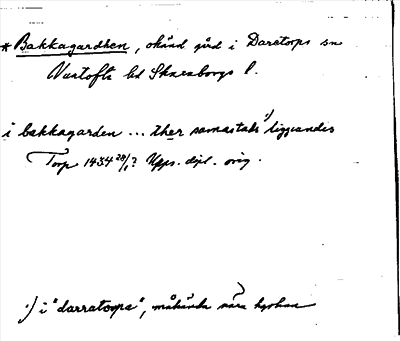 * Bakkagardhen, okänd gård i Daretorps sn
Vartofta hd Skaraborgs l.
i bakkagarden ... ther samastads 1) liggiandes
Torp 1434 28/1? Upps. dipl. orig.
1) i "darratorpa", måhända nära kyrkan